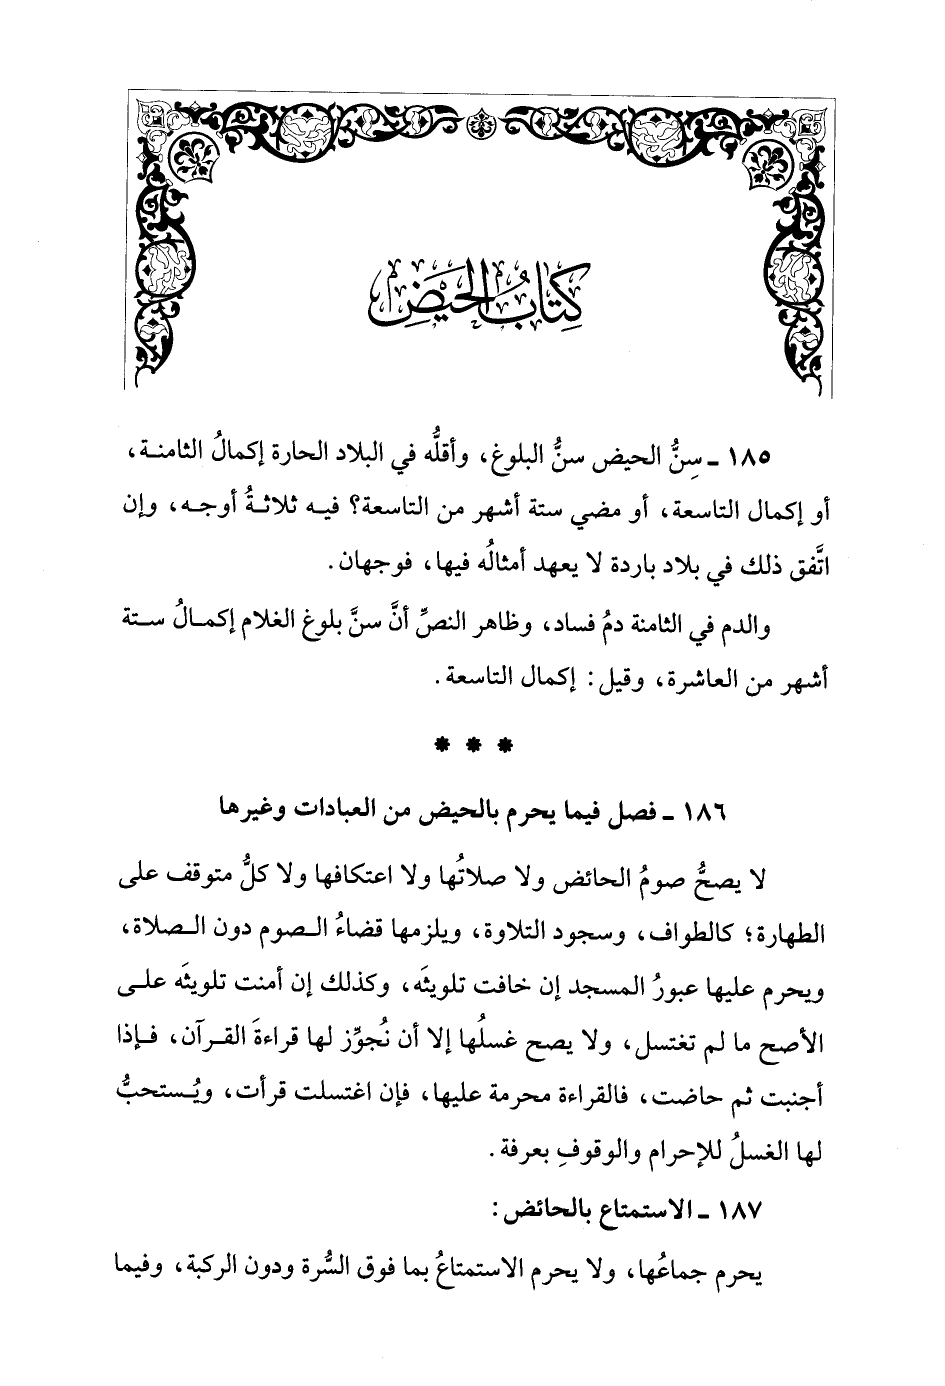 كِتَابُ الحَيْضِ
١٨٥ ـ سِنُّ الحيض سنُّ البلوغ، وأقلُّه في البلاد الحارة إكمالُ الثامنـة،
أو إكمال التاسعة، أو مضي ستة أشهر من التاسعة؟ فيـه ثلاثـةُ أوجـه، وإن
اتَّفق ذلك في بلاد باردة لا يعهد أمثالُه فيها، فوجهان.
والدم في الثامنة دمُ فساد، وظاهر النصِّ أنَّ سنَّ بلوغ الغلام إكمـالُ سـتة
أشهر من العاشرة، وقيل: إكمال التاسعة.
* * *
١٨٦ ـ فصل فيما يحرم بالحيض من العبادات وغيرها
لا يصحُّ صومُ الحائض ولا صلاتُها ولا اعتكافها ولا كلُّ متوقف على
الطهارة؛ كالطواف، وسجود التلاوة، ويلزمها قضاءُ الـصوم دون الـصلاة،
ويحرم عليها عبورُ المسجد إن خافت تلويثَه، وكذلك إن أمنت تلويثَه علـى
الأصح ما لم تغتسل، ولا يصح غسلُها إلا أن نُجوِّز لها قراءةَ القـرآن، فـإذا
أجنبت ثم حاضت، فالقراءة محرمة عليها، فإن اغتسلت قرأت، ويُـستحبُّ
لها الغسلُ للإحرام والوقوفِ بعرفة.
١٨٧ ـ الاستمتاع بالحائض:
يحرم جماعُها، ولا يحرم الاستمتاعُ بما فوق السُّرة ودون الركبة، وفيما